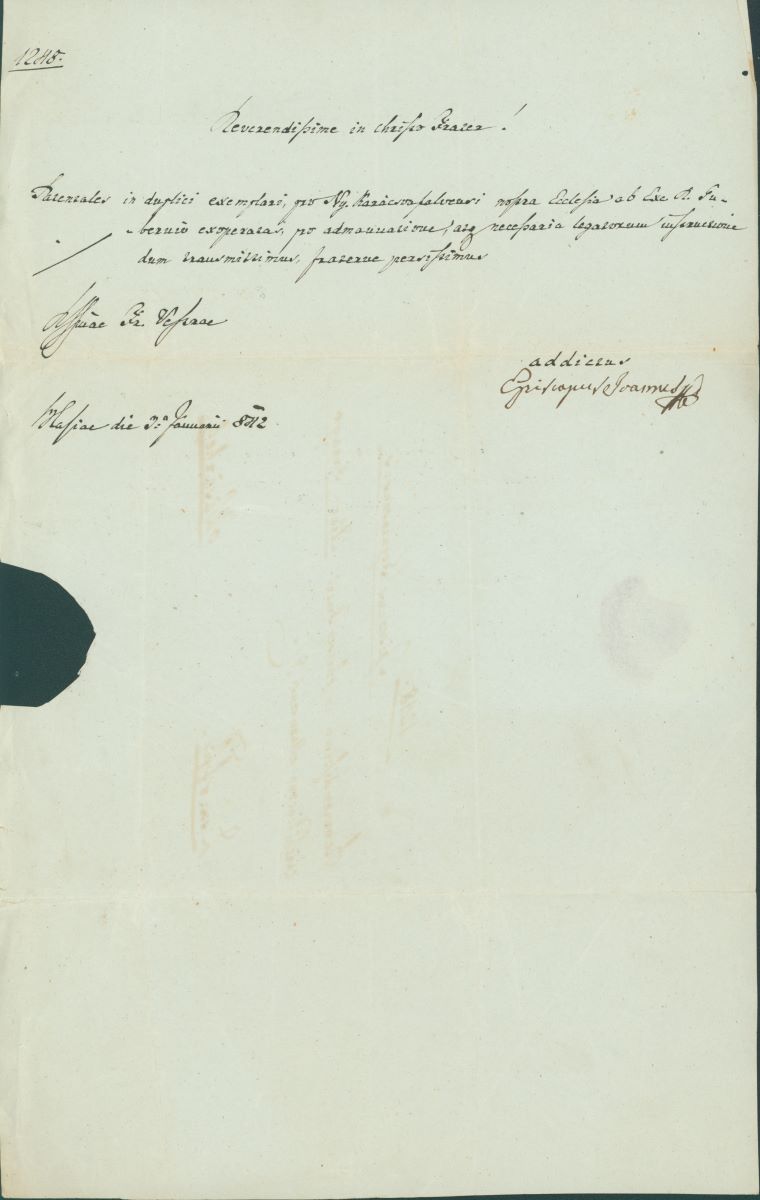 1248.
Reverendissime in Christo Frater!
Patentales in duplici exemplari, pro Ny. Karácsonfalvensi nostra Ecclesia ab Exc. R. Gu-
bernio exoperatas, pro admanuatione, atq necessaria legatorum instructione
dum transmittimus, fraterne persistimus
Fr. Vestrae
addictus
Episcopus Joannes
Blasiae die 3a Januarii 842